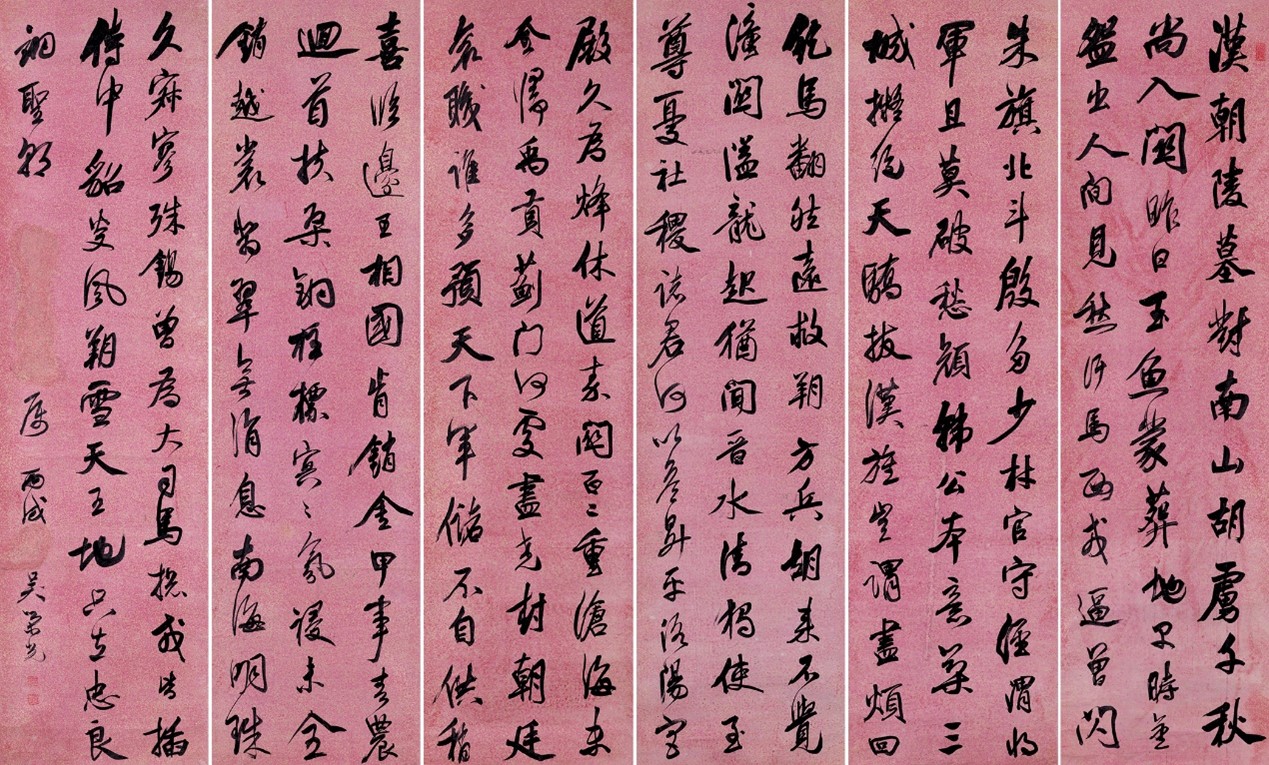 漢朝陵墓對南山胡虜千秋
尚入關昨日玉魚蒙葬地早時金
盌出人間見愁汗馬西戎逼曾閃
朱旗北斗殷多少材官守涇渭將
軍且莫破愁顏韓公本意築三
城擬絕天驕拔漢旌豈謂盡煩回
紇馬翻然遠救朔方兵胡來不覺
潼關隘龍起猶聞晉水清獨使至
尊憂社稷諸君何以答昇平洛陽宮
殿久為烽休道秦關百二重滄海未
全歸禹貢薊門何處盡堯封朝廷
袞職誰多預天下軍儲不自供稍
喜臨邊王相國肯銷金甲事春農
迴首扶桑銅柱標冥〻氛祲未全
銷越裳翡翠無消息南海明珠
久寂寥殊錫曾為大司馬總戎皆插
侍中貂炎風朔雪天王地只在忠良
翊聖朝 丙戌 吳榮光